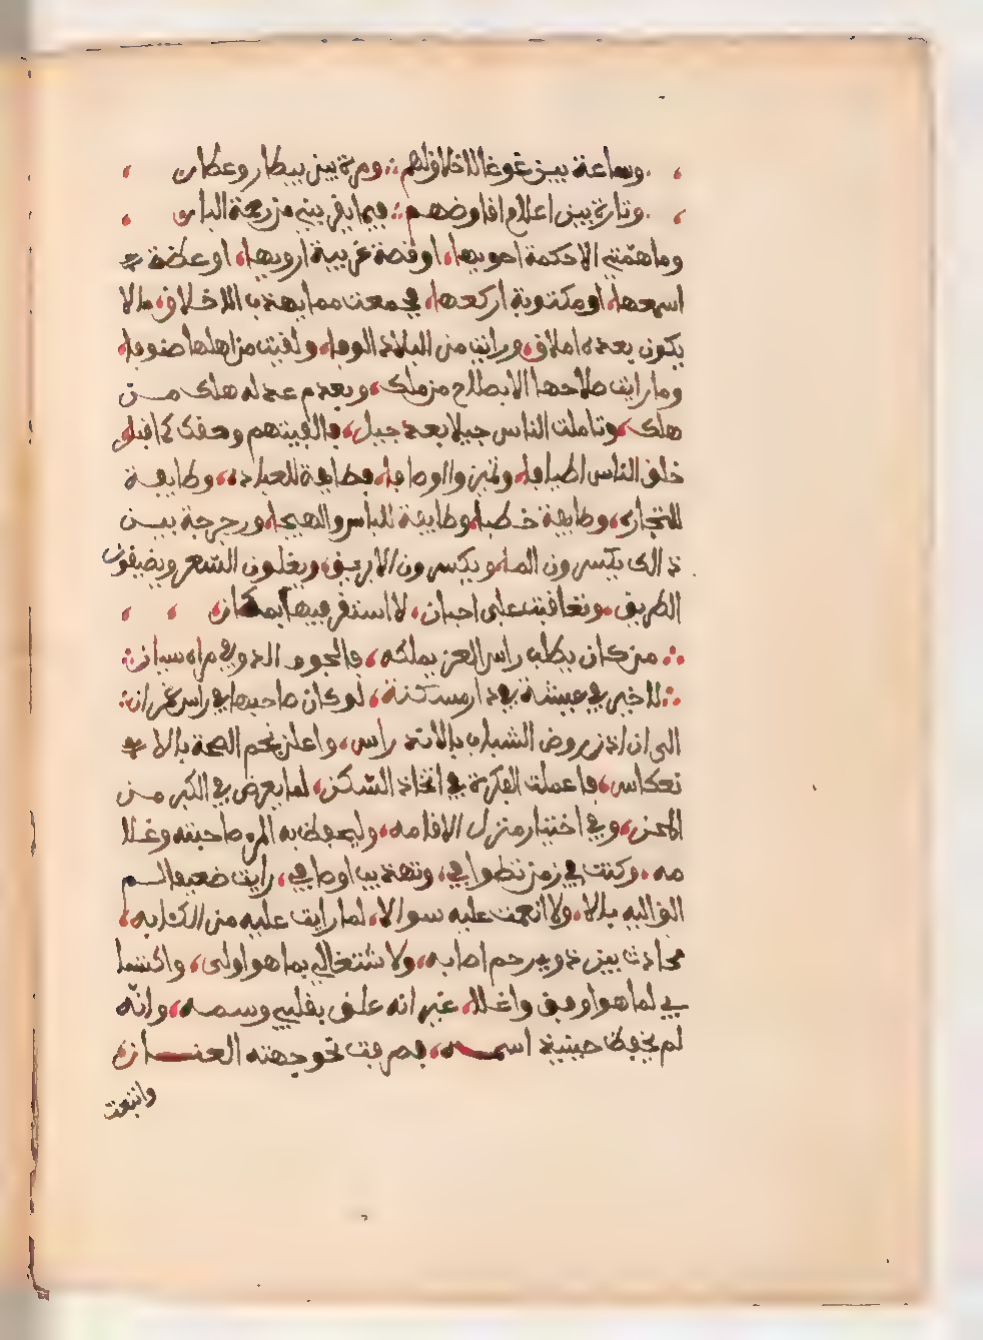 وساعة بين غوغا للاخلاق لهم ؞ ومرة بين بيطار وعطار
وتارة بين اعلام افاوضهم ؞ فيما يقربني من رحمة البار
وما همّتي الا حكمة احويها، او قصة غريبة ارويها، او عظة
اسمعها، او مكتوبة اركعها، في معنى مما يهذب الاخلاق، ما لا
يكون بعده املاق، ورايت من البلاد الوفا، ولقيت من اهلها صنوفا،
وما رايت صلاحها الا بصلاح من ملك، وبعدم عدله هلك مــن
هلك، وتاملت الناس جيلا بعد جيل، فالفيتهم وحقك كما قيل،
خلق الناس اطيافا، وتميزوا اوصافا، فطايفة للعبادة، وطايفــة
للتجارة، وطايفة خطبا، وطايفة للباس والهيجا، ورجرجة بيــن
ذالك يكسرون الما، ويكسرون الاريق، ويغلون السعر ويضيقون
الطريق، وتعاقبت على احيان، لا استقر فيها بمكان،
؞ من كان يطلب راس العز يملكه، فالجود الذوي مراه سيان ؞
؞ لا خير في عيشة في دار مسكنة، لو كان صاحبها في راس غمدان ؞
الى ان اذن روض الشباب بالاندراس، واعلن نجم الصحة بالا
نعكاس، فاعملت الفكرة في اتخاذ السّكن، لما يعرض في الكبر مــن
المحن، وفي اختيار منزل الاقامه، وليحفظ به المرء صاحبته وغلا
مه، وكنت في زمن تطوافي، وتهذيب اوصافي، رايت ضعيفا لــم
الق اليه بالا، ولا انعمت عليه سوالا، لما رايت عليه من الكئابه،
محادث بين ذوي رحم اصابه، ولا شتغالي بما هو اولى، واكتسا
بي لما هو اوفق واغلا، غير انه علق بقلبي وسمــه، وانّه
لم يحفظ حينيذ اسمــه، فصرفت نحو جهته العنــــان،
واتبعت